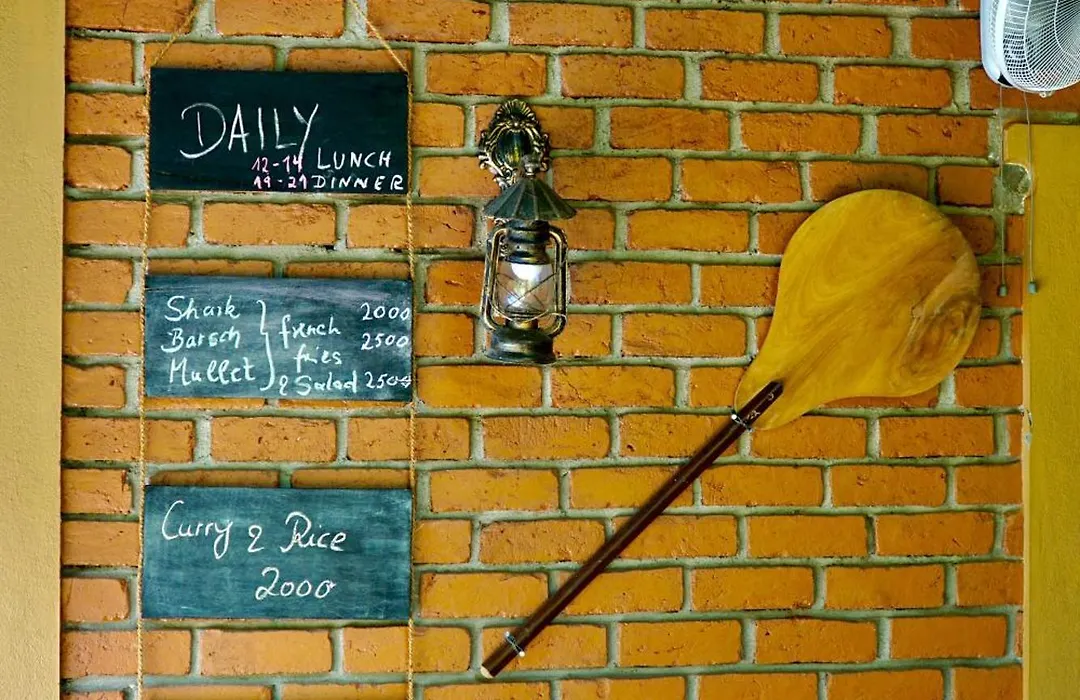 DAILY
12-14 LUNCH
19-21 DINNER
Shark 2000
Barsch } french 2500
Mullet fries
& Salad 2500
Curry & Rice
2000